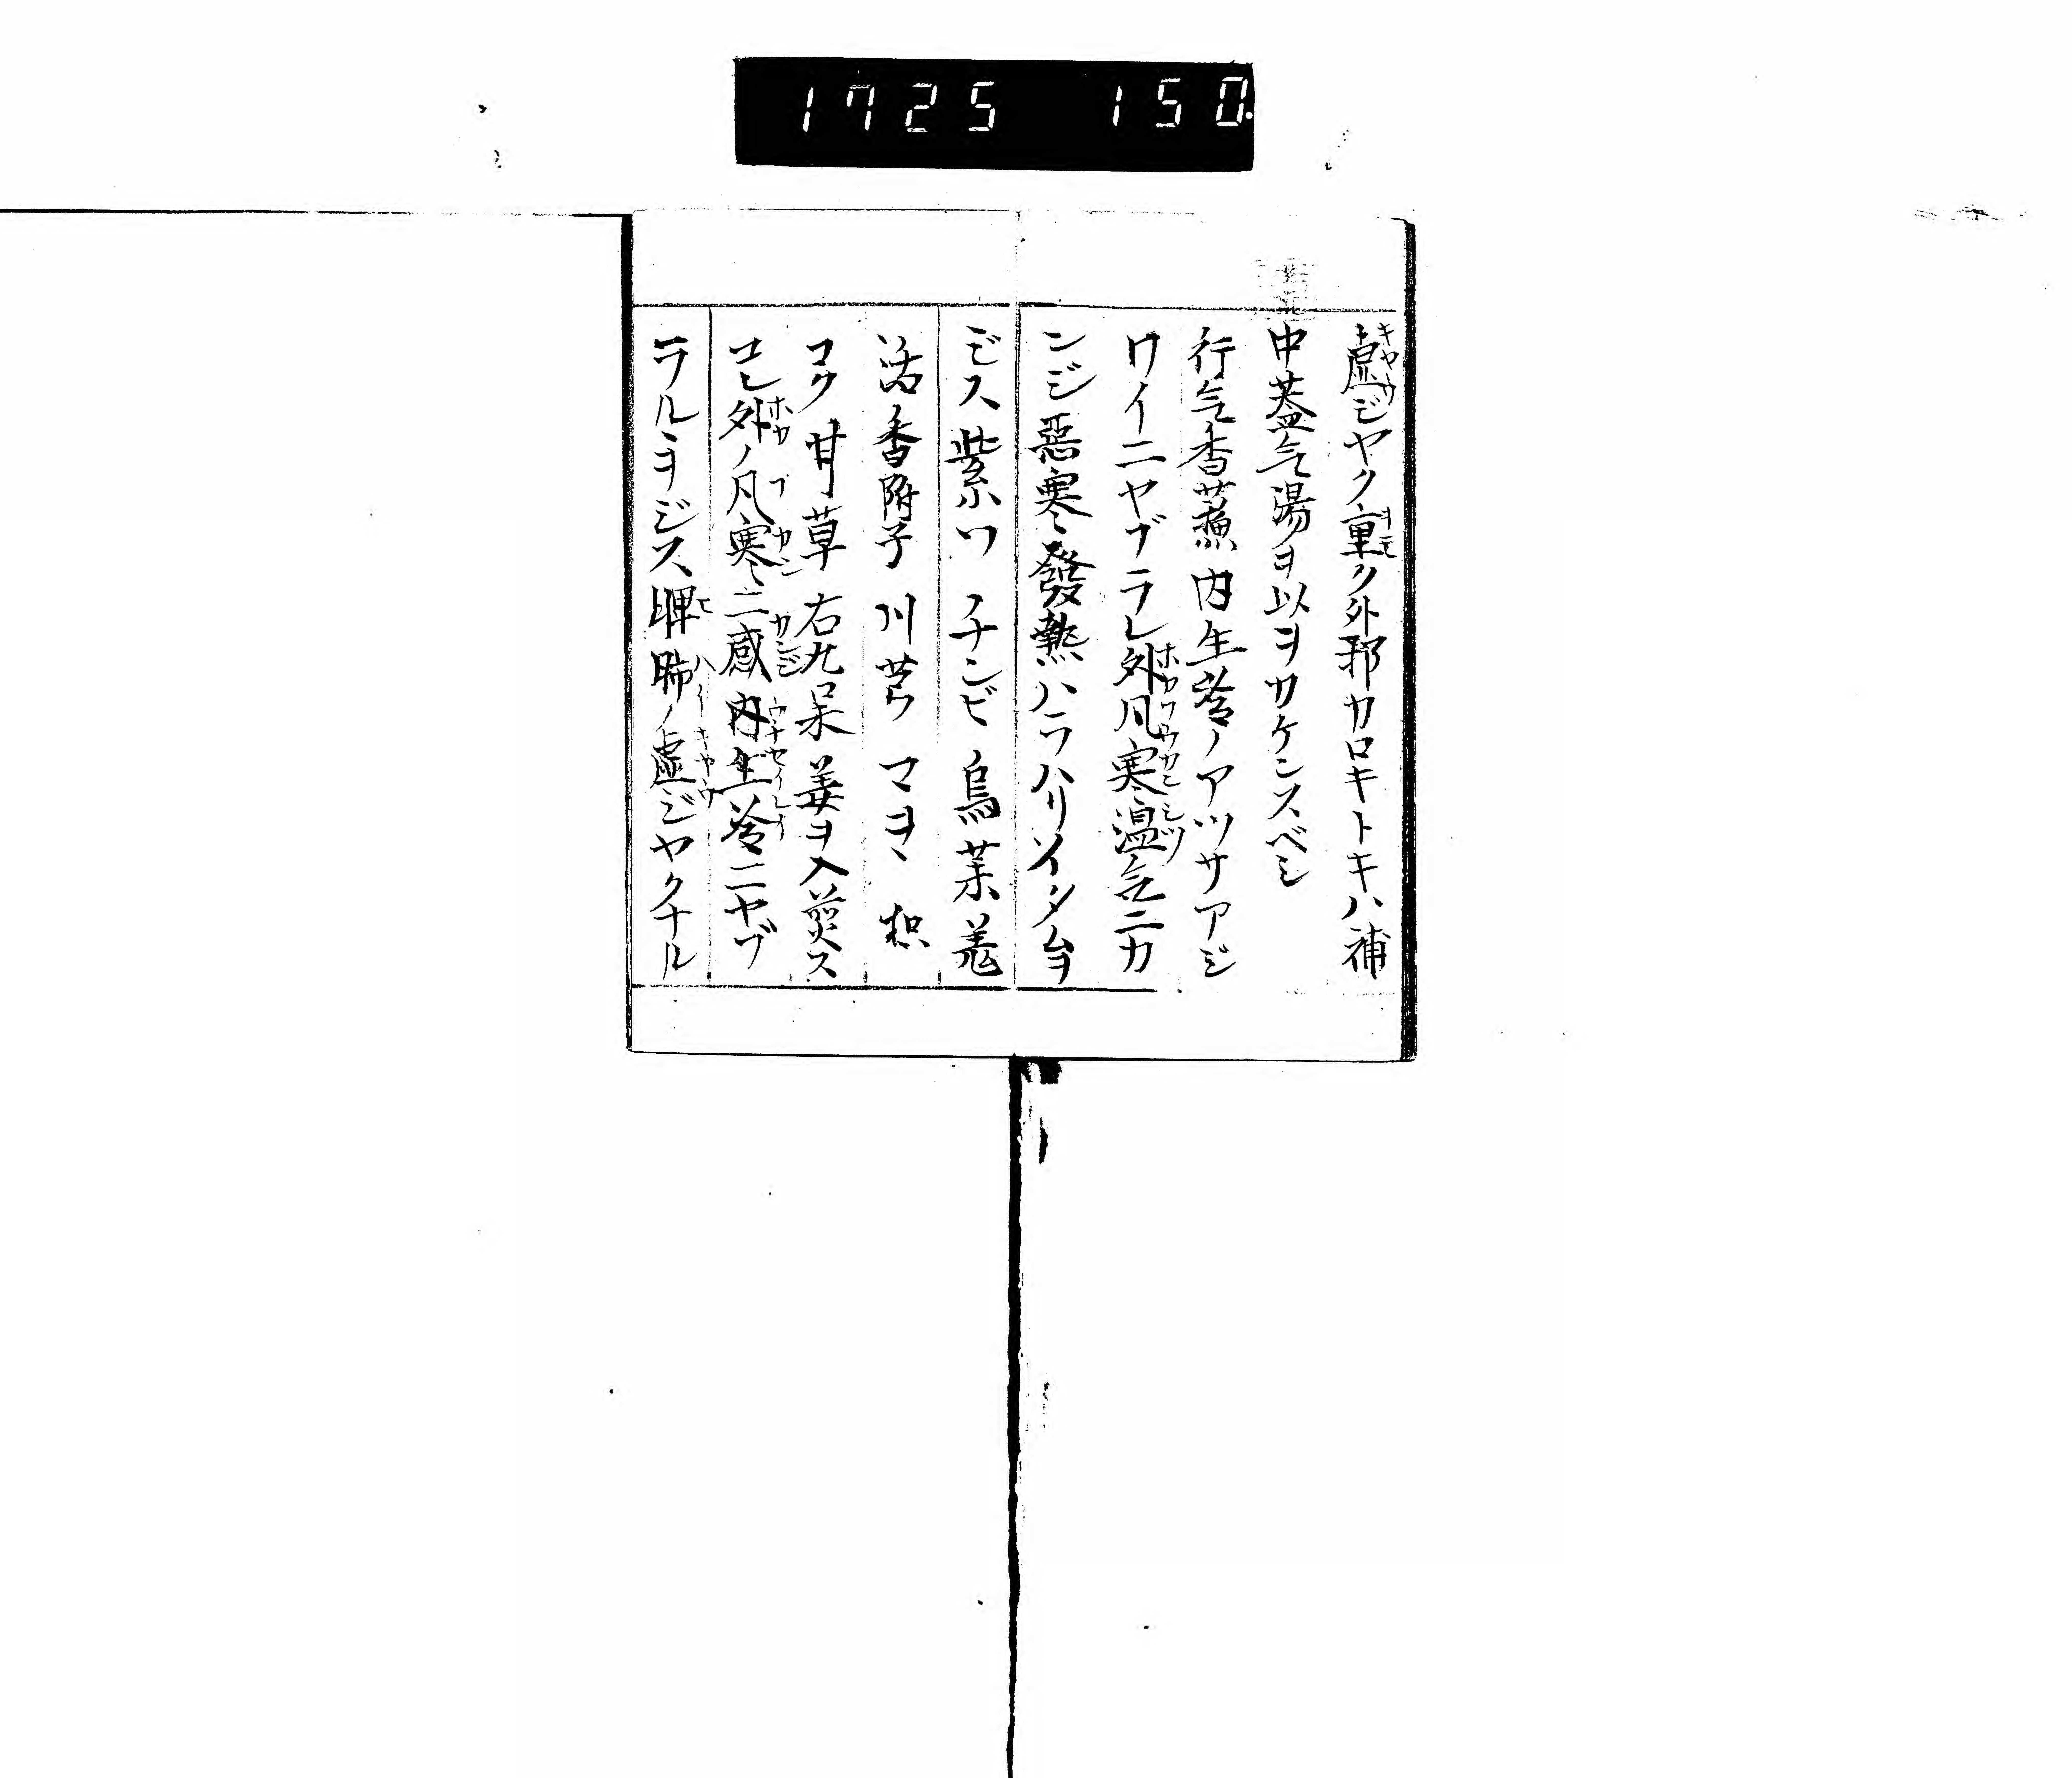 1725 150.
虚ジヤク重ク外邪カロキトキハ補
中益气湯ヲ以ヲカケンスベシ
行气香蘓 内生冷ノアツサアジ
ワイニヤブラレ外凡寒湿气ニカ
ンジ惡寒發熱ハラハリイタムヲ
ヂス 紫ソ チンビ 烏茱 羗
活 香附子 川芎 マヲヽ 枳
コク 甘草 右九味姜ヲ入煎ス
コレ外ノ凡寒ニ感内生冷ニヤブ
ラルヲジス 脾肺ノ虚ジヤクナル